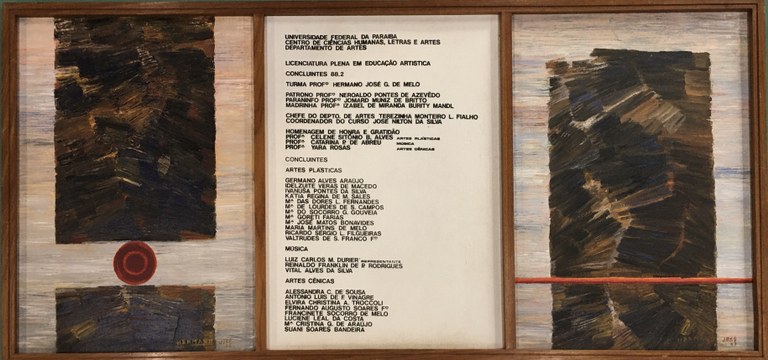 UNIVERSIDADE FEDERAL DA PARAIBA
CENTRO DE CIÊNCIAS HUMANAS, LETRAS E ARTES
DEPARTAMENTO DE ARTES
LICENCIATURA PLENA EM EDUCAÇÃO ARTISTICA
CONCLUINTES 88.2
TURMA PROFº HERMANO JOSÉ G. DE MELO
PATRONO PROFº NEROALDO PONTES DE AZEVÊDO
PARANINFO PROFº JOMARD MUNIZ DE BRITTO
MADRINHA PROFª IZABEL DE MIRANDA BURITY MANDL
CHEFE DO DEPTO. DE ARTES TEREZINHA MONTEIRO L. FIALHO
COORDENADOR DO CURSO JOSÉ NILTON DA SILVA
HOMENAGEM DE HONRA E GRATIDÃO
PROFª CELENE SITÔNIO B. ALVES ARTES PLÁSTICAS
PROFª CATARINA P. DE ABREU MÚSICA
PROFª YARA ROSAS ARTES CÊNICAS
CONCLUINTES
ARTES PLÁSTICAS
GERMANO ALVES ARAÚJO
IDELZUITE VERAS DE MACEDO
IVANUSA PONTES DA SILVA
KATIA REGINA DE M. SALES
Mª DAS DORES L. FERNANDES
Mª DE LOURDES DE S. CAMPOS
Mª DO SOCORRO G. GOUVEIA
Mª GORETI FARIAS
Mª JOSÉ MATOS BONAVIDES
MARIA MARTINS DE MELO
RICARDO SERGIO L. FILGUEIRAS
VALTRUDES DE S. FRANCO Fº
MÚSICA
LUIZ CARLOS M. DURIER REPRESENTANTE
REINALDO FRANKLIN DE P. RODRIGUES
VITAL ALVES DA SILVA
ARTES CÊNICAS
ALESSANDRA C. DE SOUSA
ANTONIO LUIS DE F. VINAGRE
ELVIRA CHRISTINA A. TROCCOLI
FERNANDO AUGUSTO SOARES Fº
FRANCINETE SOCORRO DE MELO
LUCIENE LEAL DA COSTA
Mª CRISTINA G. DE ARAÚJO
SUANI SOARES BANDEIRA